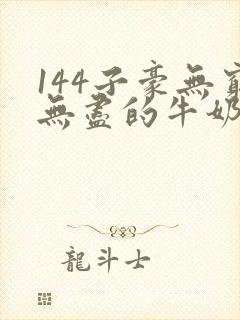 144子豪無窮
無盡的牛奶
龍斗士